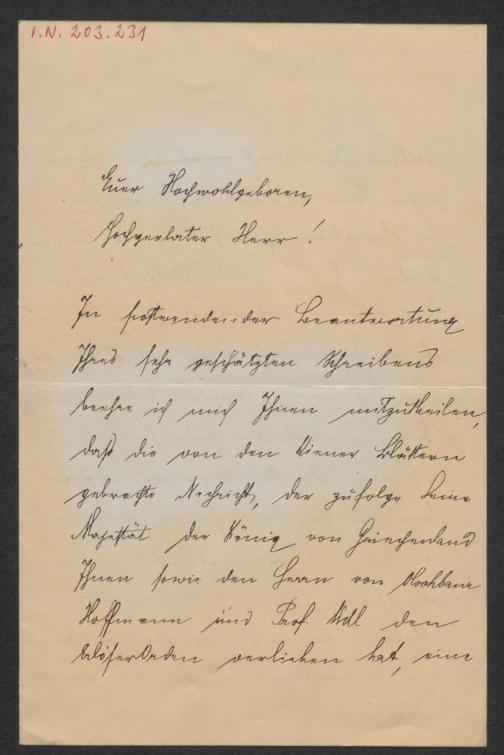 I.N. 203.231
Euer Hochwohlgeboren,
Hochgeehrter Herr!
In postwendender Beantwortung
Ihres sehr geschätzten Schreibens
beehre ich mich Ihnen mitzutheilen,
daß die von den Wiener Blättern
gebrachte Nachricht, der zufolge Seine
Majestät der König von Griechenland
Ihnen sowie den Herrn von
Hoffmann und Prof. den
Erlöserorden verliehen hat, eine